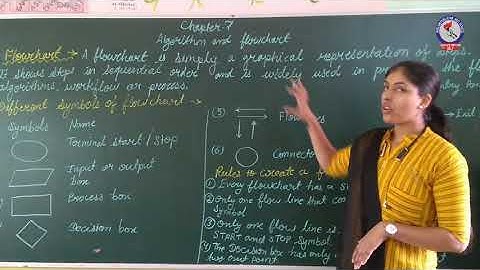 Chapter-7
Algorithm and flowchart
Flowchart → A flowchart is simply a graphical representation of
It shows steps in sequential order and is widely used in the
algorithms, workflow or process.
Different Symbols of flowchart →
Symbols Name
Terminal start / Stop
Input or output
box
Process box
Decision box
(5)
(6) Connector
Rules to create a
① Every flowchart has a
② Only one flow line that
Symbol
③ Only one flow line is
START and STOP Symbol
④ The Decision box has only
two out point.
Exit